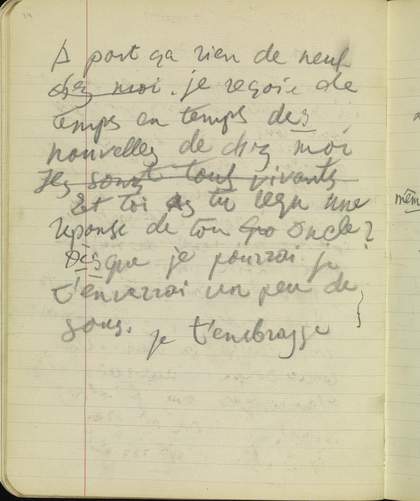 A part ça rien de neuf
chez moi. je reçois de
temps en temps des
nouvelles de chez moi
Ils sont tous vivants
Et toi as tu reçu une
réponse de ton oncle?
Dès que je pourrai je
t'enverrai un peu de
sous. je t'embrasse
mêm